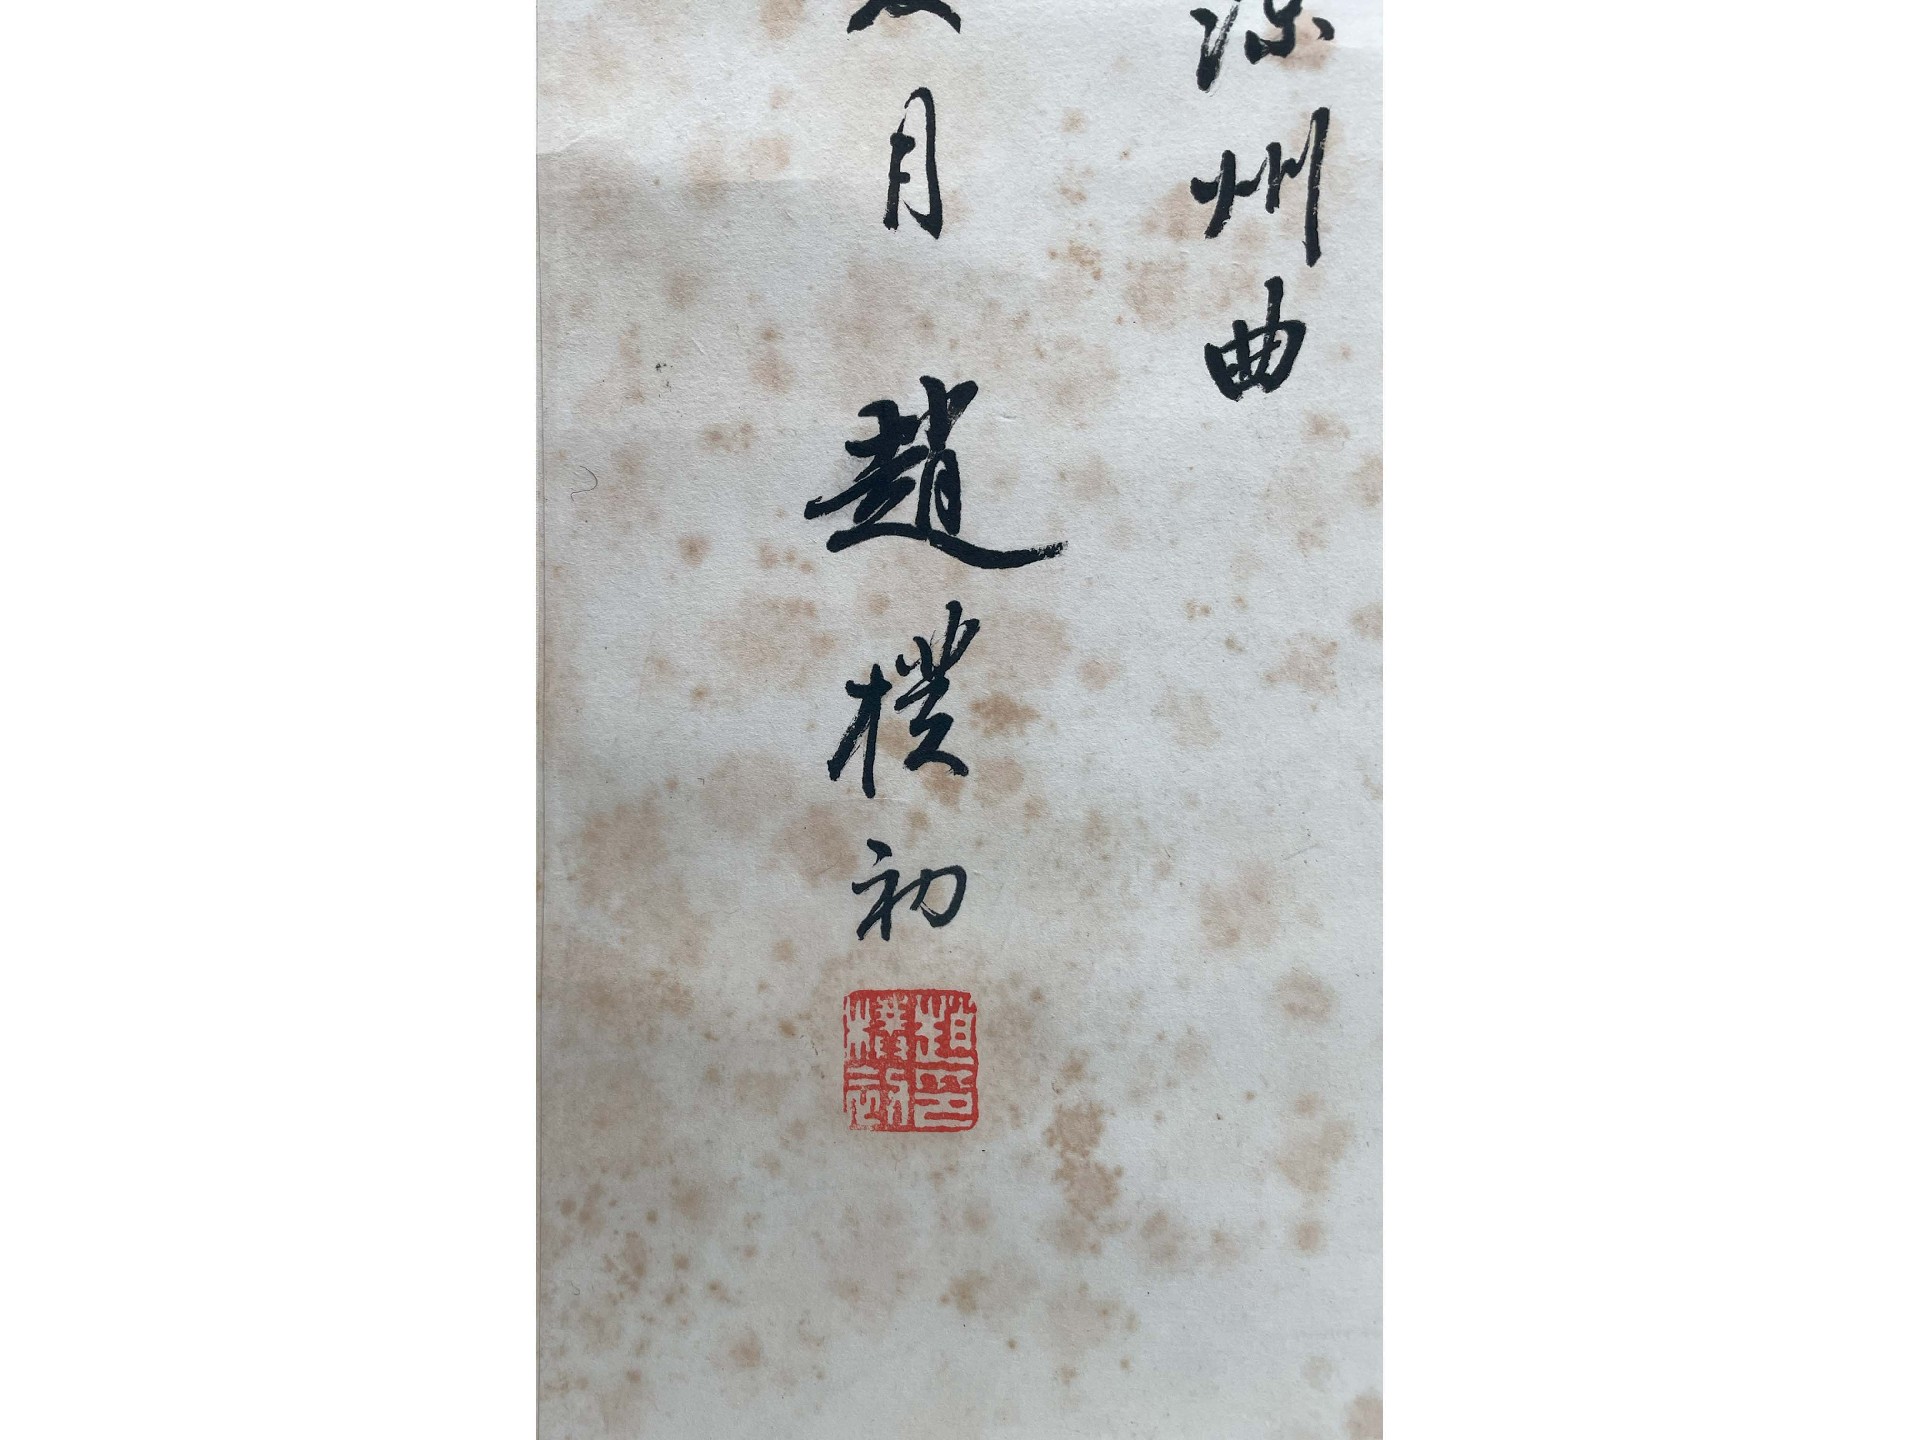 涼州曲
月
趙樸初
趙印
樸初